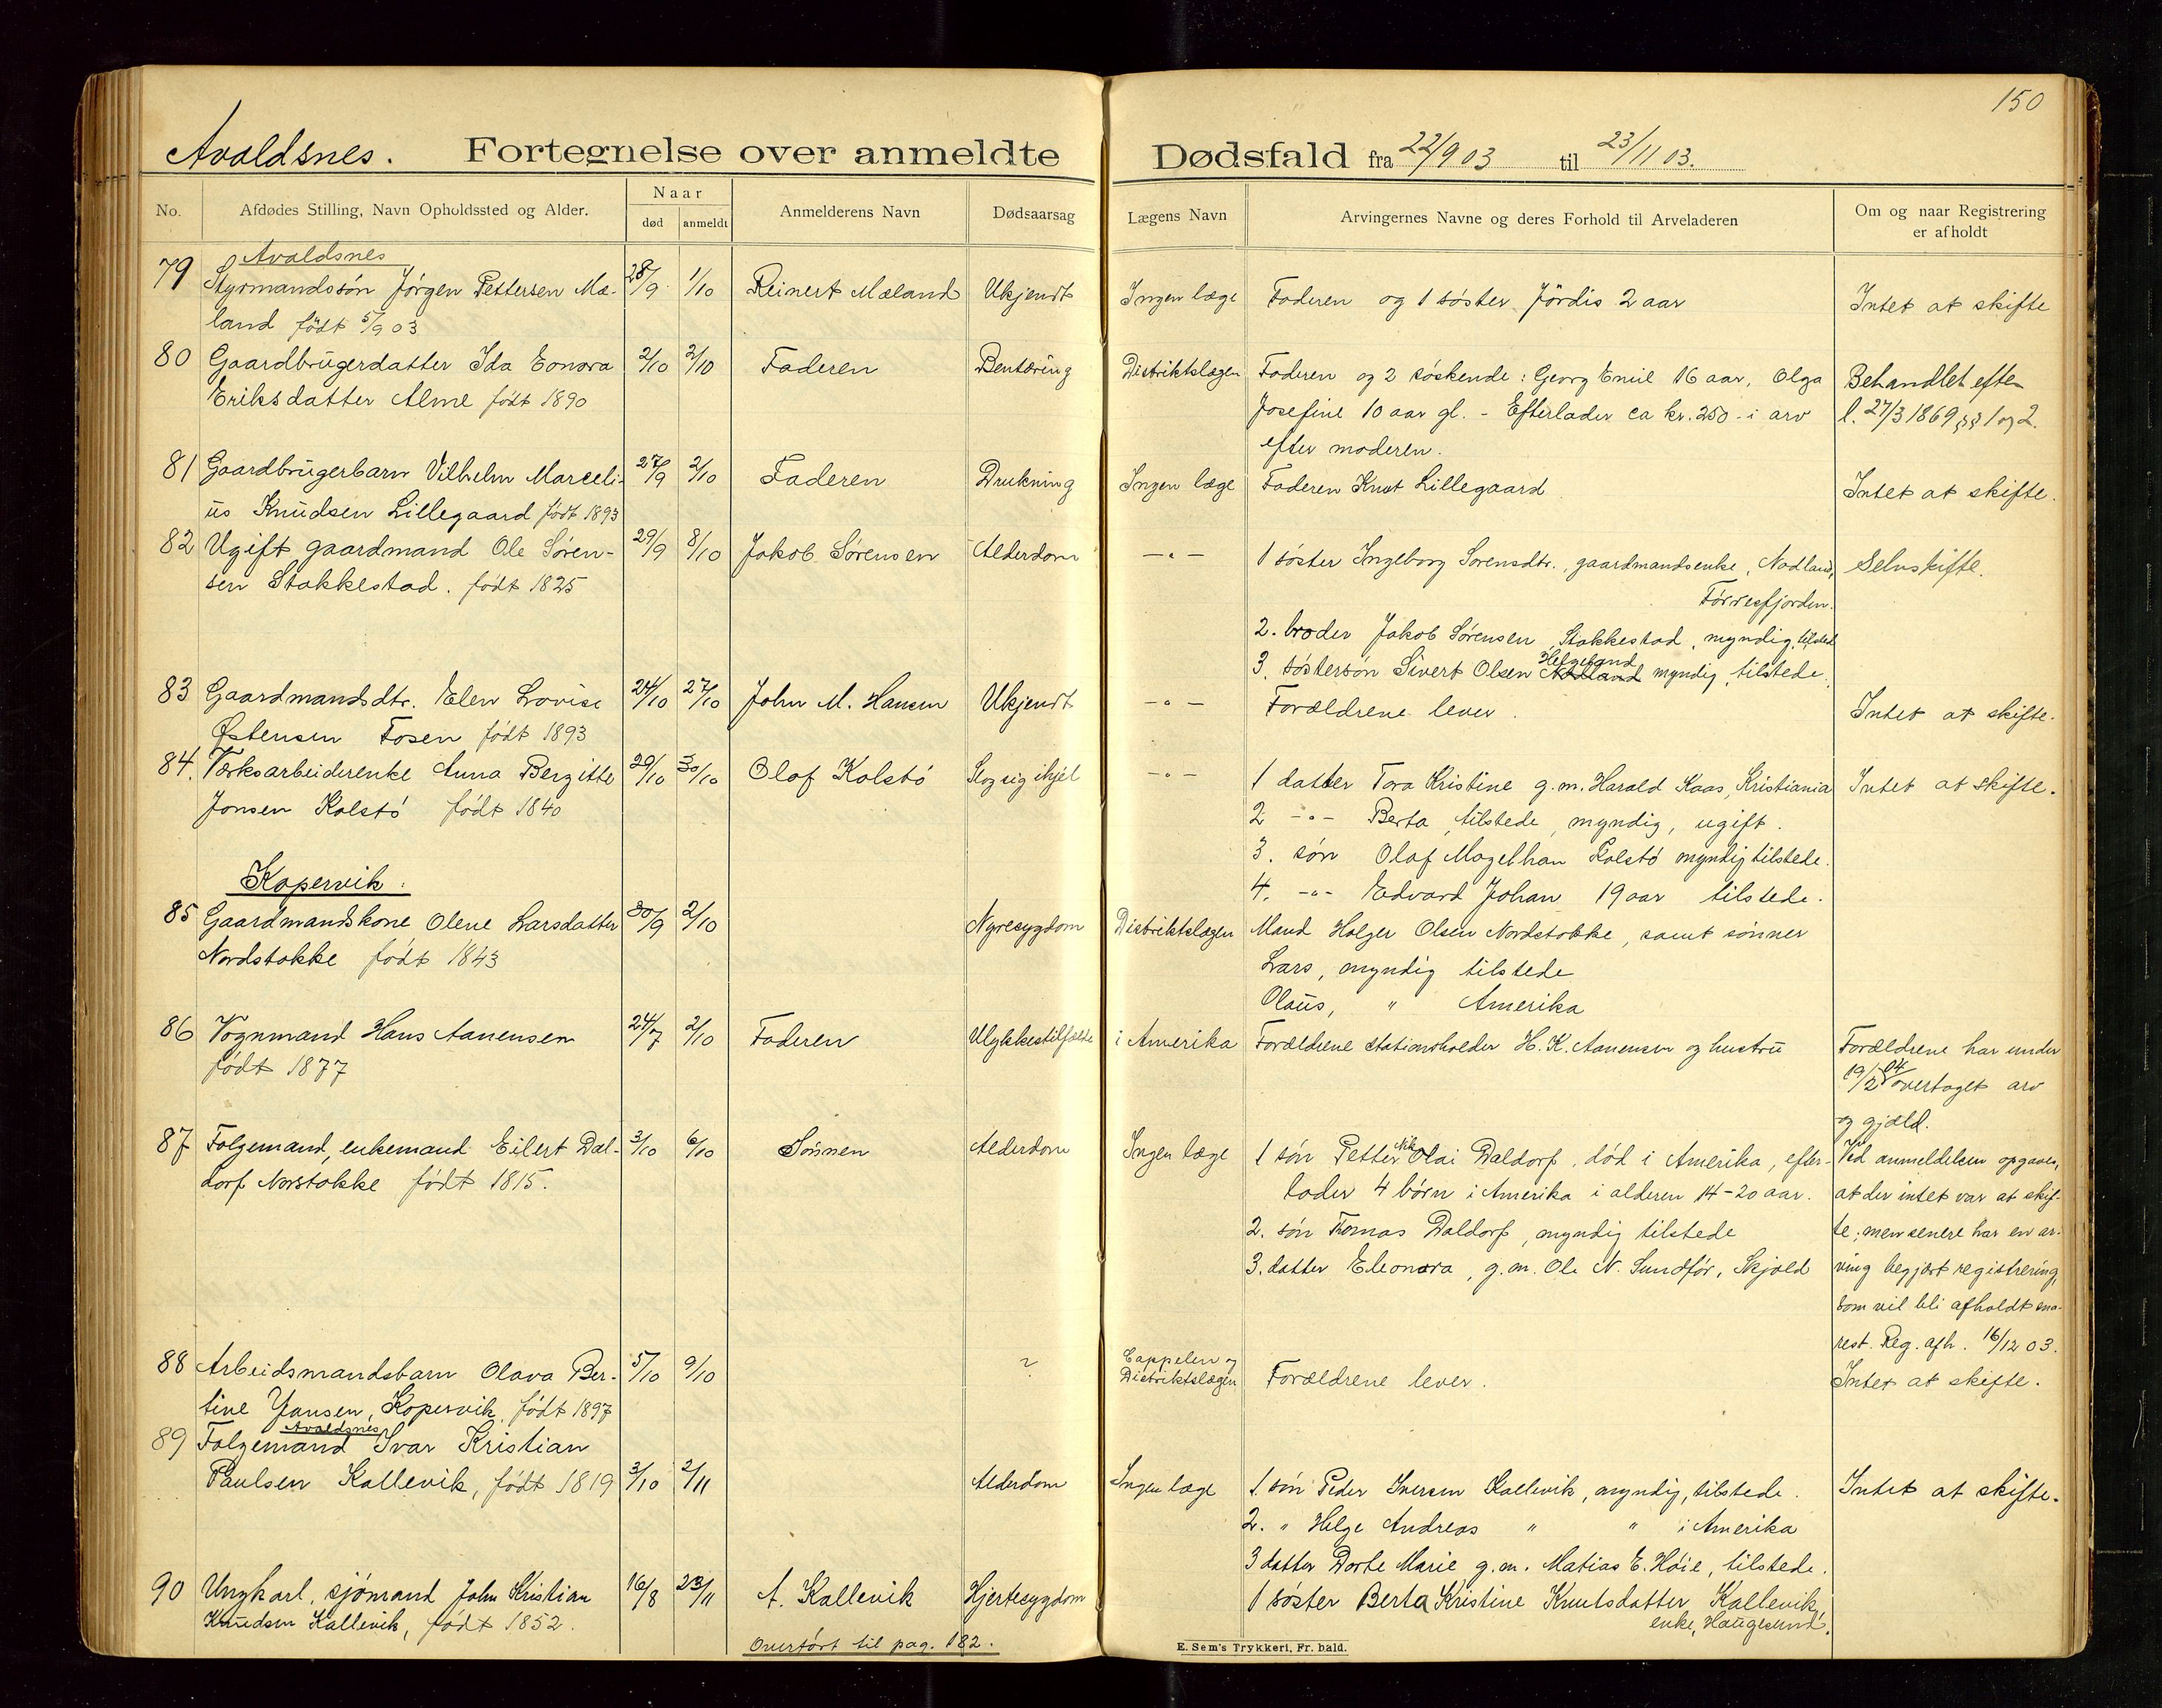 150
Avaldsnes. Fortegnelse over anmeldte Dødsfald fra 22/9 03 til 23/11 03.
No. Afdødes Stilling, Navn Opholdssted og Alder. Naar død anmeldt Anmelderens Navn Dødsaarsag Lægens Navn Arvingernes Navne og deres Forhold til Arveladeren Om og naar Registrering er afholdt
Avaldsnes
79 Styrmandssøn Jørgen Pettersen Mæ- 28/9 1/10 Reinert Mæland Ukjendt Ingen læge Faderen og 1 søster Jördis 2 aar Intet at skifte
land født 5/9 03
80 Gaardbrugerdatter Ida Eonora 2/10 2/10 Faderen Bentæring Distriktslægen Faderen og 2 søskende: Georg Emil 16 aar, Olga Behandlet efter
Eriksdatter Alme født 1890 Josefine 10 aar gl. - Efterlader ca kr. 250 - i arv l. 27/3 1869 §§ 1 og 2.
efter moderen.
81 Gaardbrugerbarn Vilhelm Marceli- 27/9 2/10 Faderen Drukning Ingen læge Faderen Knut Lillegaard Intet at skifte.
us Knudsen Lillegaard født 1893
82 Ugift gaardmand Ole Søren- 29/9 8/10 Jakob Sørensen Alderdom -"- 1 søster Ingeborg Sørensdtr., gaardmandsenke, Nodland, Selvskifte.
sen Stakkestad. født 1825 Førresfjorden.
2. broder Jakob Sørensen Stakkestad, myndig, tilsted
3. søstersøn Sivert Olsen Nodland Helgeland myndig, tilstede.
83 Gaardmandsdtr. Elen Lovise 24/10 27/10 John M. Hansen Ukjendt -"- Forældrene lever. Intet at skifte.
Østensen Fosen født 1893
84. Værksarbeiderenke Anna Bergitte 29/10 30/10 Olaf Kolstø Slog sig ihjel -"- 1 datter Tora Kristine g.m. Harald Kaas, Kristiania Intet at skifte.
Jonsen Kolstø født 1840 2 -"- Berta, tilstede, myndig, ugift.
3. søn Olaf Magelhan Kolstø myndig tilstede.
Kopervik: 4. -"- Edvard Johan 19 aar tilstede.
85 Gaardmandskone Olene Larsdatter 30/9 2/10 Nyresygdom Distriktslægen Mand Holger Olsen Nordstokke, samt sønner
Nordstokke født 1843 Lars, myndig tilstede
Olaus, " Amerika
86 Vognmand Hans Aanensen 24/7 2/10 Faderen Ulykkestilfælde i Amerika Forældrene stationsholder H. K. Aanensen og hustru Forældrene har under
født 1877 19/2 04 overtaget arv
og gjæld.
87 Følgemand, enkemand Eilert Dal- 3/10 6/10 Sønnen Alderdom Ingen læge 1 søn Petter Nik Olai Daldorf, død i Amerika, efter- Ved anmeldelsen opgaves,
dorf Norstokke født 1815. lader 4 børn i Amerika i alderen 14-20 aar. at der intet var at skif-
2. søn Tomas Daldorf, myndig tilstede te; men senere har en ar-
3. datter Eleonora, g.m. Ole N. Sundfør, Skjold ving begjært registrering,
som vil bli afholdt sna-
rest. Reg. afh. 16/12 03.
88 Arbeidsmandsbarn Olava Ber- 5/10 9/10 ? Cappelen og Distriktslægen Forældrene lever. Intet at skifte.
tine Jansen, Kopervik, født 1897
Avaldsnes
89 Følgemand Ivar Kristian
Paulsen Kallevik, født 1819 3/10 2/11 Alderdom Ingen læge 1. søn Peder Iversen Kallevik, myndig, tilstede. Intet at skifte.
2. " Helge Andreas " " i Amerika
3 datter Dorte Marie g.m. Matias E. Høie, tilstede.
90 Ungkarl, sjømand John Kristian 16/8 23/11 A. Kallevik Hjertesygdom 1 søster Berta Kristine Knutsdatter Kallevik,
Knudsen Kallevik, født 1852. enke, Haugesund.
Overført til pag. 182.
E. Sem's Trykkeri, Fr. hald.